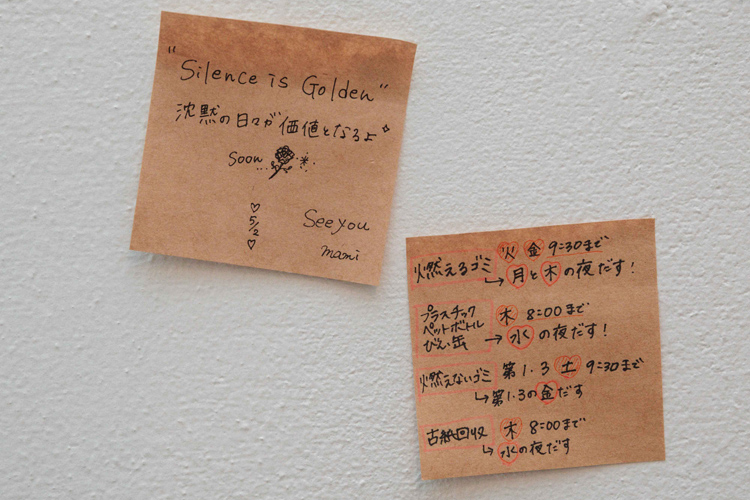 "Silence is Golden"
沈黙の日々が価値となるよ
Soon
♡
5/2
♡
See you
mami
燃えるゴミ 火 金 9:30まで
↳ 月と木の夜だす!
プラスチック
ペットボトル
びん・缶
木 8:00まで
→ 水の夜だす!
燃えないゴミ 第1.3 土 9:30まで
↳ 第1.3の金だす
古紙回収 木 8:00まで
↳ 水の夜だす